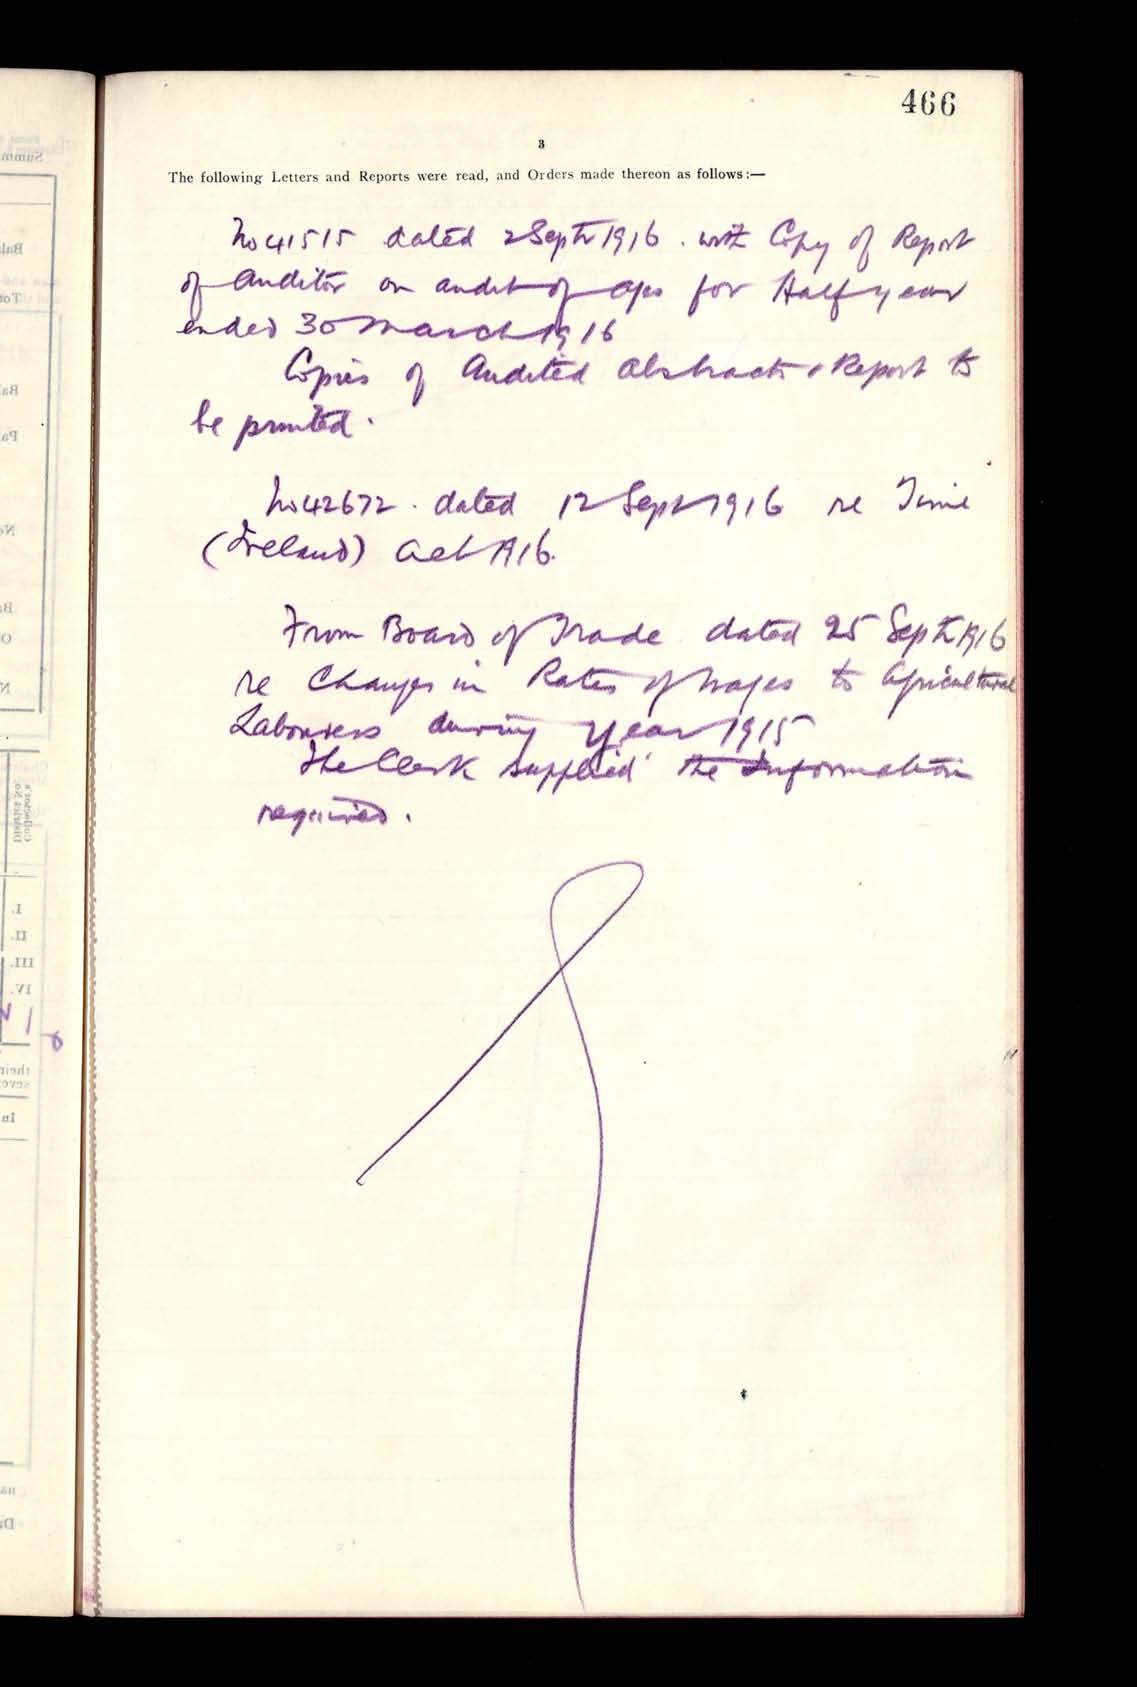 466
3
The following Letters and Reports were read, and Orders made thereon as follows:—
No 41515 dated 2 Septr 1916. with Copy of Report
of Auditor on audit of a/cs for Half year
ended 30 March 1916
Copies of Audited Abstracts & Report to
be printed.
No 42672. dated 12 Sept 1916 re Time
(Ireland) Act 1916.
From Board of Trade dated 25 Septr 1916
re Changes in Rates of Wages to Agricultural
Labourers during year 1915
The Clerk supplied the Information
required.